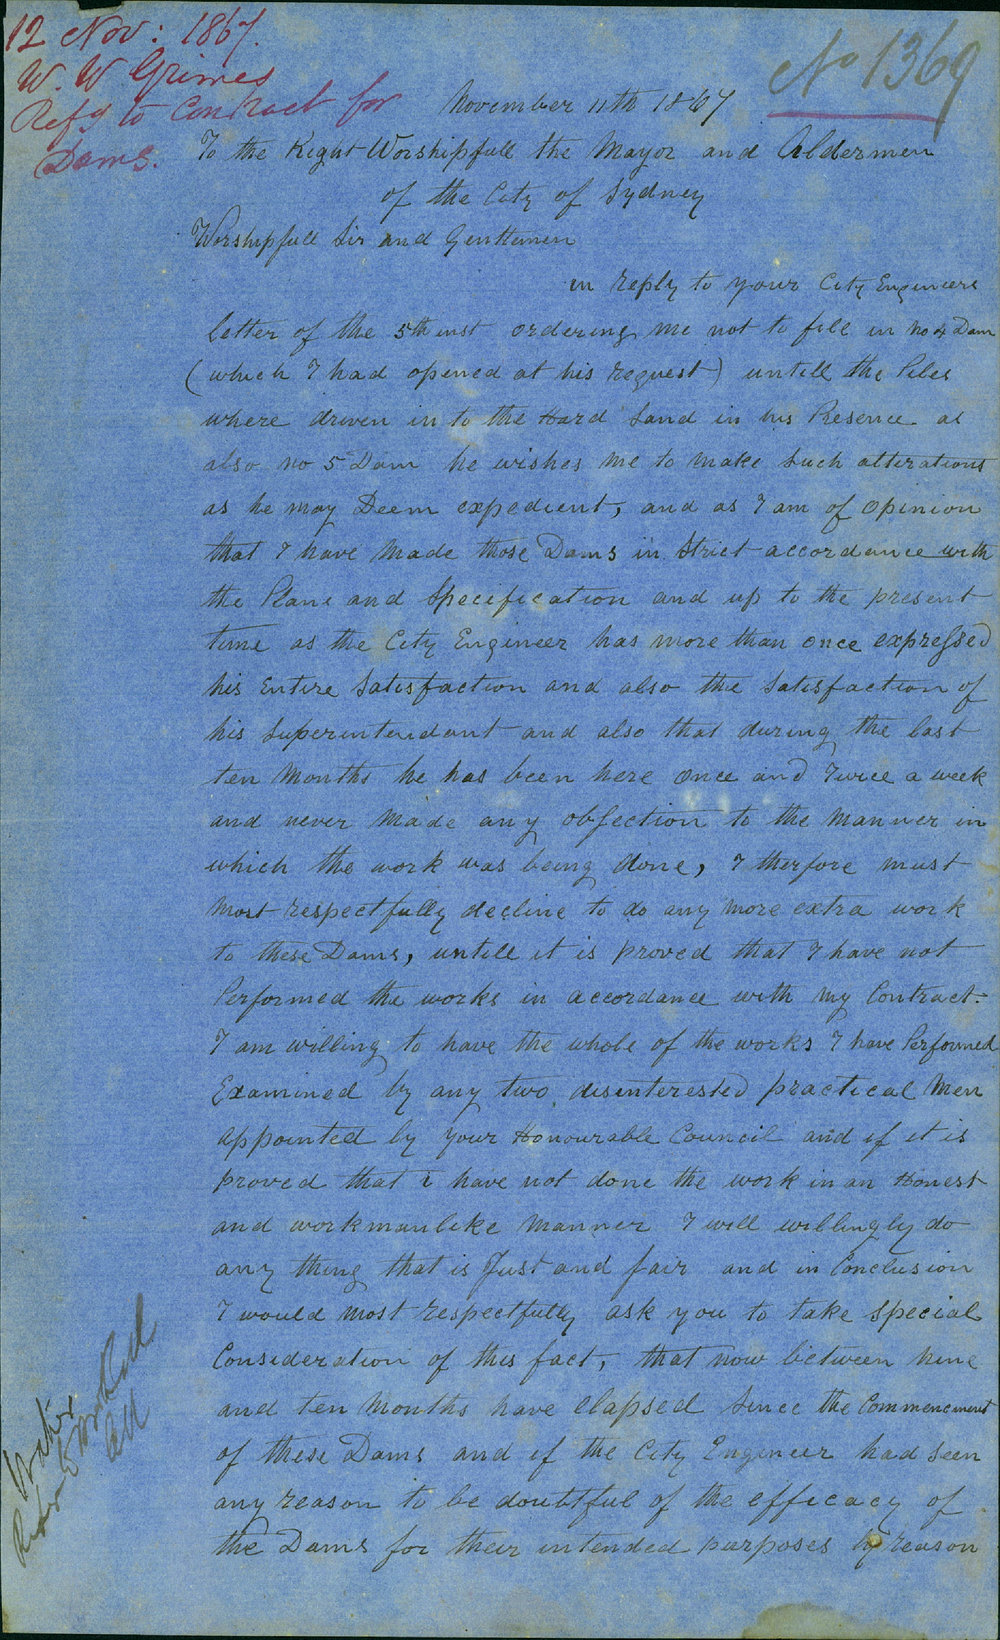 12 Nov: 1867.
W. W. Grimes
Refg to Contract for
Dams.
No 1369
November 11th 1867
To the Right Worshipfull the Mayor and Aldermen
of the City of Sydney
Worshipfull Sir and Gentlemen
in reply to your City Engineers
letter of the 5th inst ordering me not to fill in no 4 Dam
(which I had opened at his request) untill the Piles
where driven in to the Hard Sand in his Presence as
also no 5 Dam he wishes me to make such alterations
as he may Deem expedient, and as I am of opinion
that I have made those Dams in Strict accordance with
the Plans and Specification and up to the present
time as the City Engineer has more than once expressed
his Entire Satisfaction and also the Satisfaction of
his Superintendant and also that during the last
ten months he has been here once and Twice a week
and never made any objection to the manner in
which the work was being done, I therfore must
most respectfully decline to do any more extra work
to these Dams, untill it is proved that I have not
Performed the works in accordance with my Contract.
I am willing to have the whole of the works I have Performed
Examined by any two disinterested practical men
appointed by your Honourable Council and if it is
proved that i have not done the work in an Honest
and workmanlike manner I will willingly do
any thing that is Just and fair and in Conclusion
I would most respectfully ask you to take special
Consideration of this fact, that now between nine
and ten months have elapsed since the Commencement
of these Dams and if the City Engineer had seen
any reason to be doubtful of the efficacy of
the Dams for their intended purposes by reason
Water